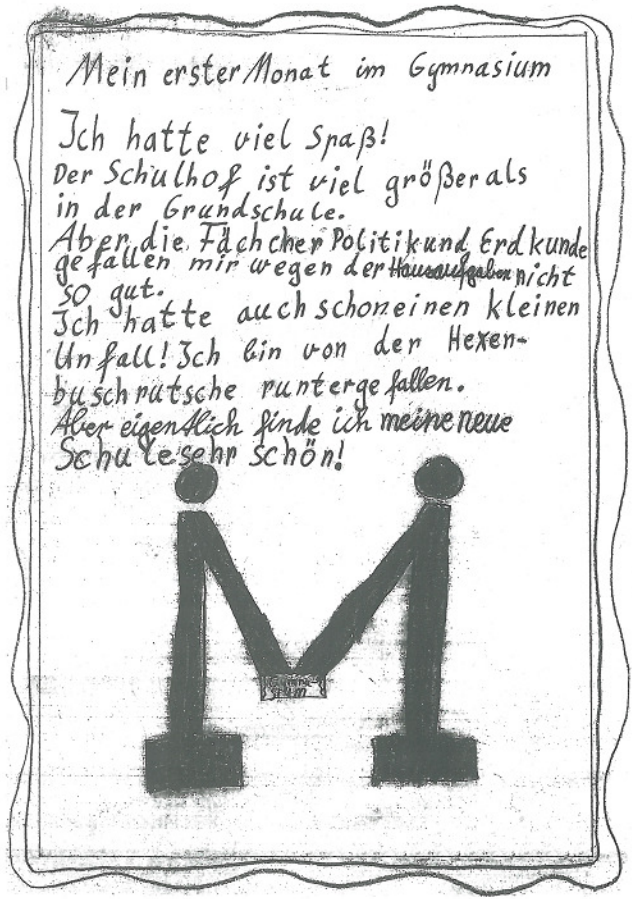 Mein erster Monat im Gymnasium
Ich hatte viel Spaß!
Der Schulhof ist viel größer als
in der Grundschule.
Aber die Fächcher Politik und Erdkunde
gefallen mir wegen der Hausaufgaben nicht
so gut.
Ich hatte auch schon einen kleinen
Unfall! Ich bin von der Hexen-
buschrutsche runtergefallen.
Aber eigentlich finde ich meine neue
Schule sehr schön!
Gymna-
sium